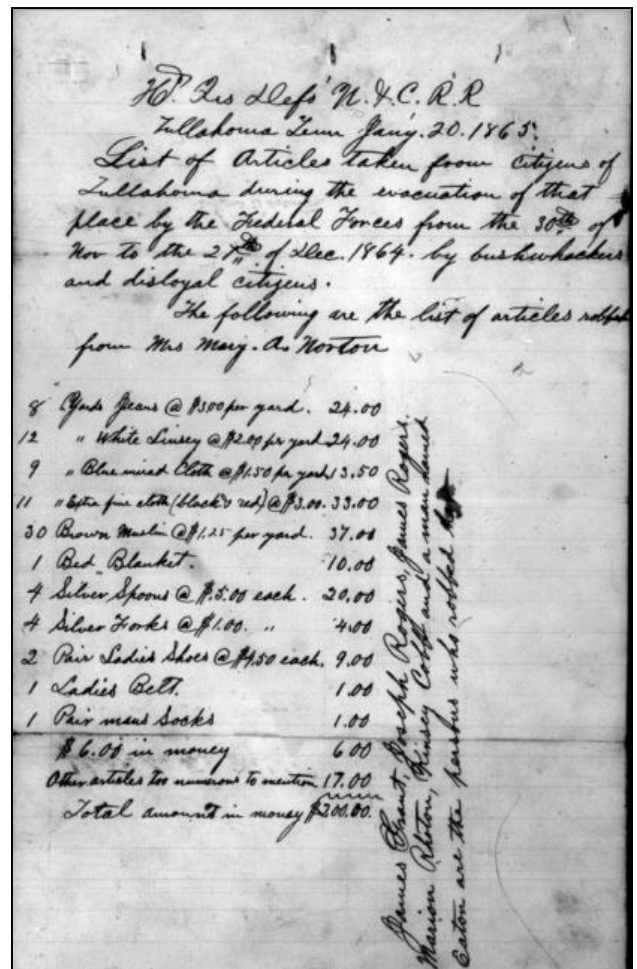 Hd. Qrs Defs' N. & C. R. R
Tullahoma Tenn Jany. 20. 1865.
List of Articles taken from citizens of
Tullahoma during the evacuation of that
place by the Federal Forces from the 30th of
Nov to the 27th of Dec. 1864. by bushwhackers
and disloyal citizens.
The following are the list of articles robbed
from Mrs Mary. A. Norton
8 Yards Jeans @ $3.00 per yard. 24.00
12 " White Linsey @ $2.00 pr yard 24.00
9 " Blue mixed Cloth @ $1.50 pr yard 13.50
11 " Extra fine cloth (black & red) @ $3.00. 33.00
30 Brown Muslin @ $1.25 per yard. 37.00
1 Bed Blanket. 10.00
4 Silver Spoons @ $5.00 each. 20.00
4 Silver Forks @ $1.00. " 4.00
2 Pair Ladies Shoes @ $4.50 each. 9.00
1 Ladies Belt. 1.00
1 Pair mans Socks 1.00
$6.00 in money 6 00
Other articles too numerous to mention 17.00
Total amount in money $200.00.
James Grant, Joseph Rogers, James Rogers.
Marion Kinsey Cobb and a man named
Eaton are the persons who robbed